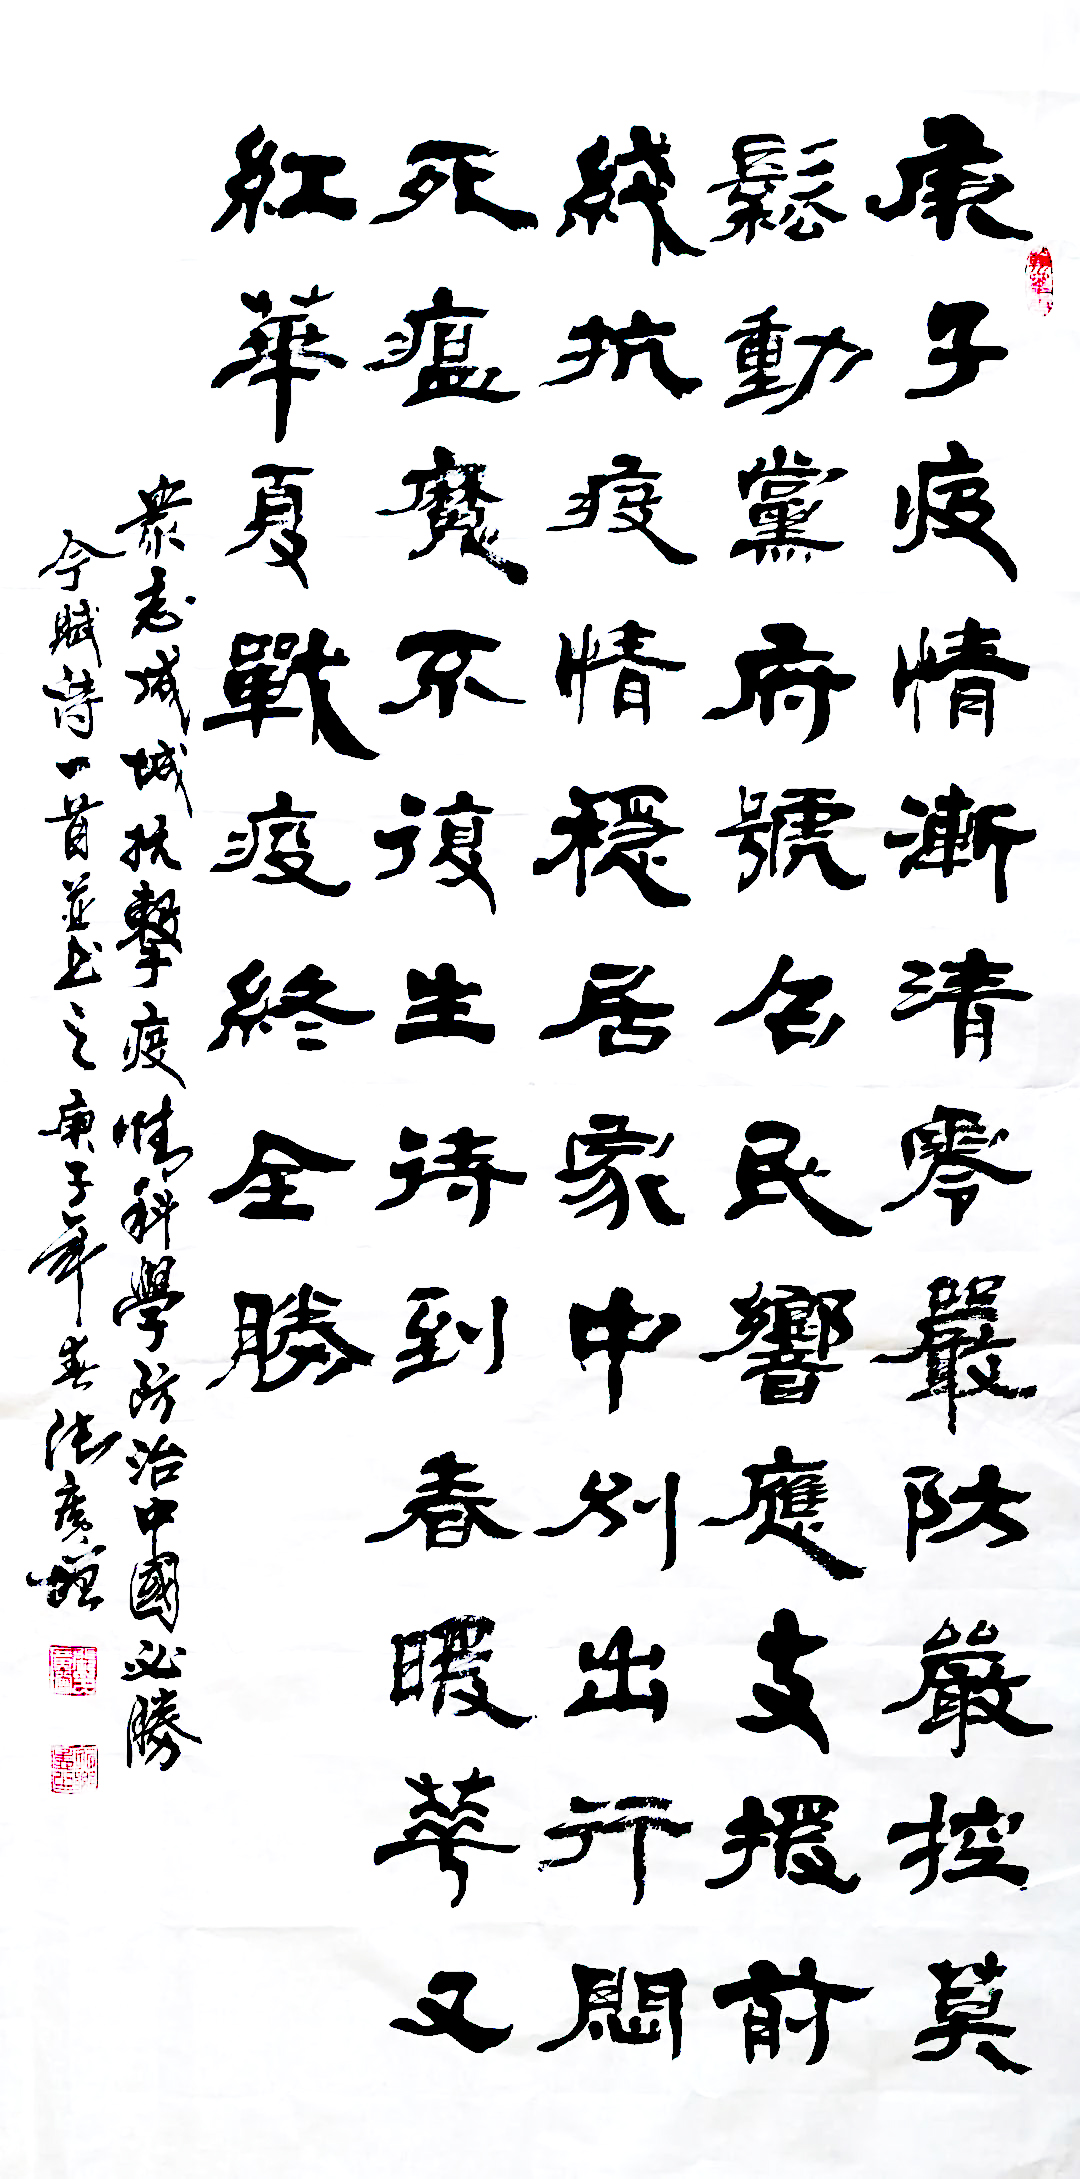 庚子疫情漸清零嚴防嚴控莫
鬆動黨府號召民響應支援前
綫抗疫情穩居家中别出行悶
死瘟魔不復生待到春暖華又
紅華夏戰疫終全勝
衆志成城抗擊疫情科學防治中國必勝
今賦詩一首並書之庚子年春張廣